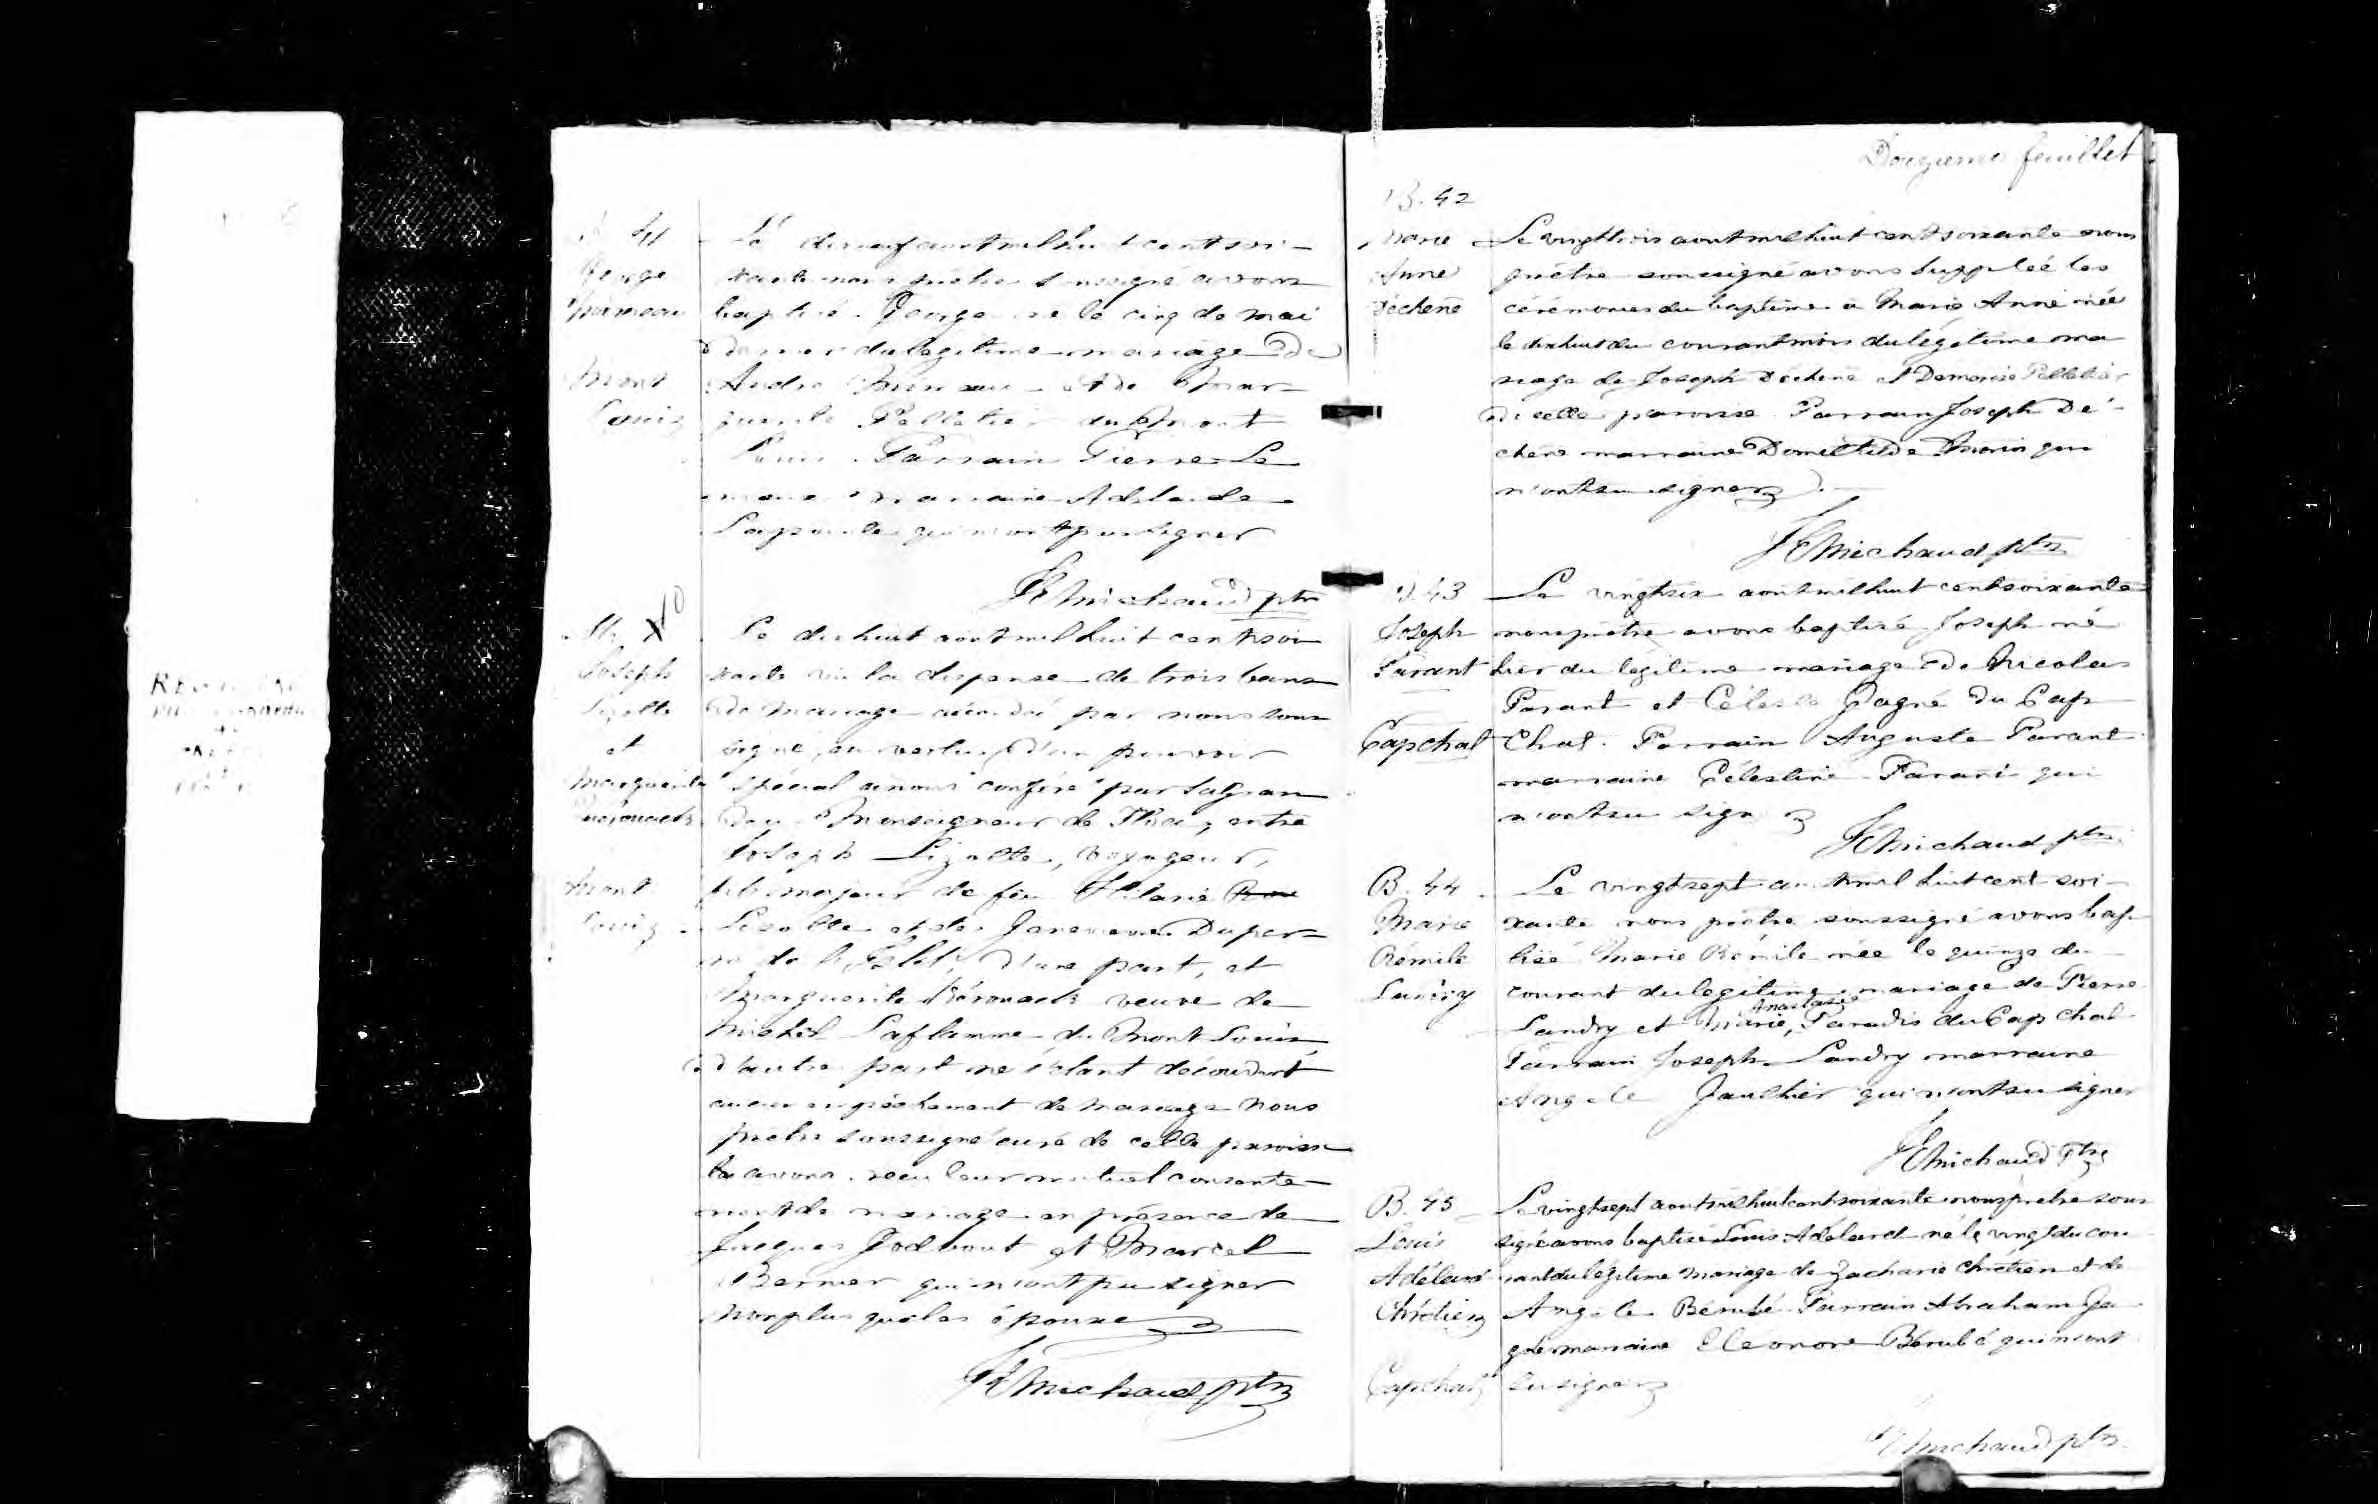 B 41
George
Mimeau
Mont
Louis
Le dixneuf aout mil huit cent soi-
xante nous prêtre soussigné avons
baptisé George né le cinq de mai
dernier du légitime mariage de
André Mimeau et de Mar-
guerite Pelletier du Mont
Louis. Parrain Pierre Le
mieux marraine Adelaide
qui n'ont pu signer
Michaud ptre
Joseph
Lizotte
et
Marguerite
Kérouack
Mont
Louis
Le dixhuit aout mil huit cent soi
xante vu la dispense de trois bans
de mariage accordé par nous sous
signé, en vertu d'un pouvoir
spécial à nous conféré par Sa Gran
deur Monseigneur de Thoa, entre
Joseph Lizotte, voyageur,
fils majeur de feu Hilarie
Lizotte et de Genevieve Duper-
ré de l'Islet, d'une part, et
Marguerite Kérouack veuve de
Michel Laflamme du Mont Louis
d'autre part ne s'étant découvert
aucun empêchement de mariage Nous
prêtre soussigné curé de cette paroisse
avons reçu leur mutuel consente-
ment de mariage en présence de
Jacques Godbout et Marcel
Bernier qui n'ont pu signer
non plus que les épouse
Michaud ptre
Douzieme feuillet
B. 42
Marie
Anne
Déchene
Le vingttrois aout mil huit cent soixante nous
prêtre soussigné avons suppléé les
cérémonies du baptême à Marie Anne née
le dixhuit du courant mois du légitime ma
riage de Joseph Déchene et Demerise Pelletier
de cette paroisse Parrain Joseph Dé-
chene marraine Domethilde Morin qui
n'ont su signer
Michaud ptre
B 43
Joseph
Parant
Capchat
Le vingtsix aout mil huit cent soixante
nous prêtre avons baptisé Joseph né
hier du légitime mariage de Nicolas
Parant et Céleste Gagné du Cap
Chat. Parrain Auguste Parant
marraine Célestine Parant qui
n'ont su signer
Michaud ptre
B. 44
Marie
Rémile
Landry
Le vingtsept aout mil huit cent soi-
xante nous prêtre soussigné avons bap
tisé Marie Rémile née le quinze du
courant du legitime mariage de Pierre
Anastasie
Landry et Marie, Paradis du Cap Chat
Parrain Joseph Landry marraine
Angele Gaulthier qui n'ont su signer
Michaud Ptre
B. 45
Louis
Adélard
Chrétien
Capchat
Le vingtsept aout mil huit cent soixante nous prêtre sous
signé avons baptisé Louis Adélard né le vingt du cou
rant du légitime mariage de Zacharie Chrétien et de
Angele Bérubé Parrain Abraham Ga
gné marraine Eleonore Bérubé qui n'ont
su signer
Michaud ptre